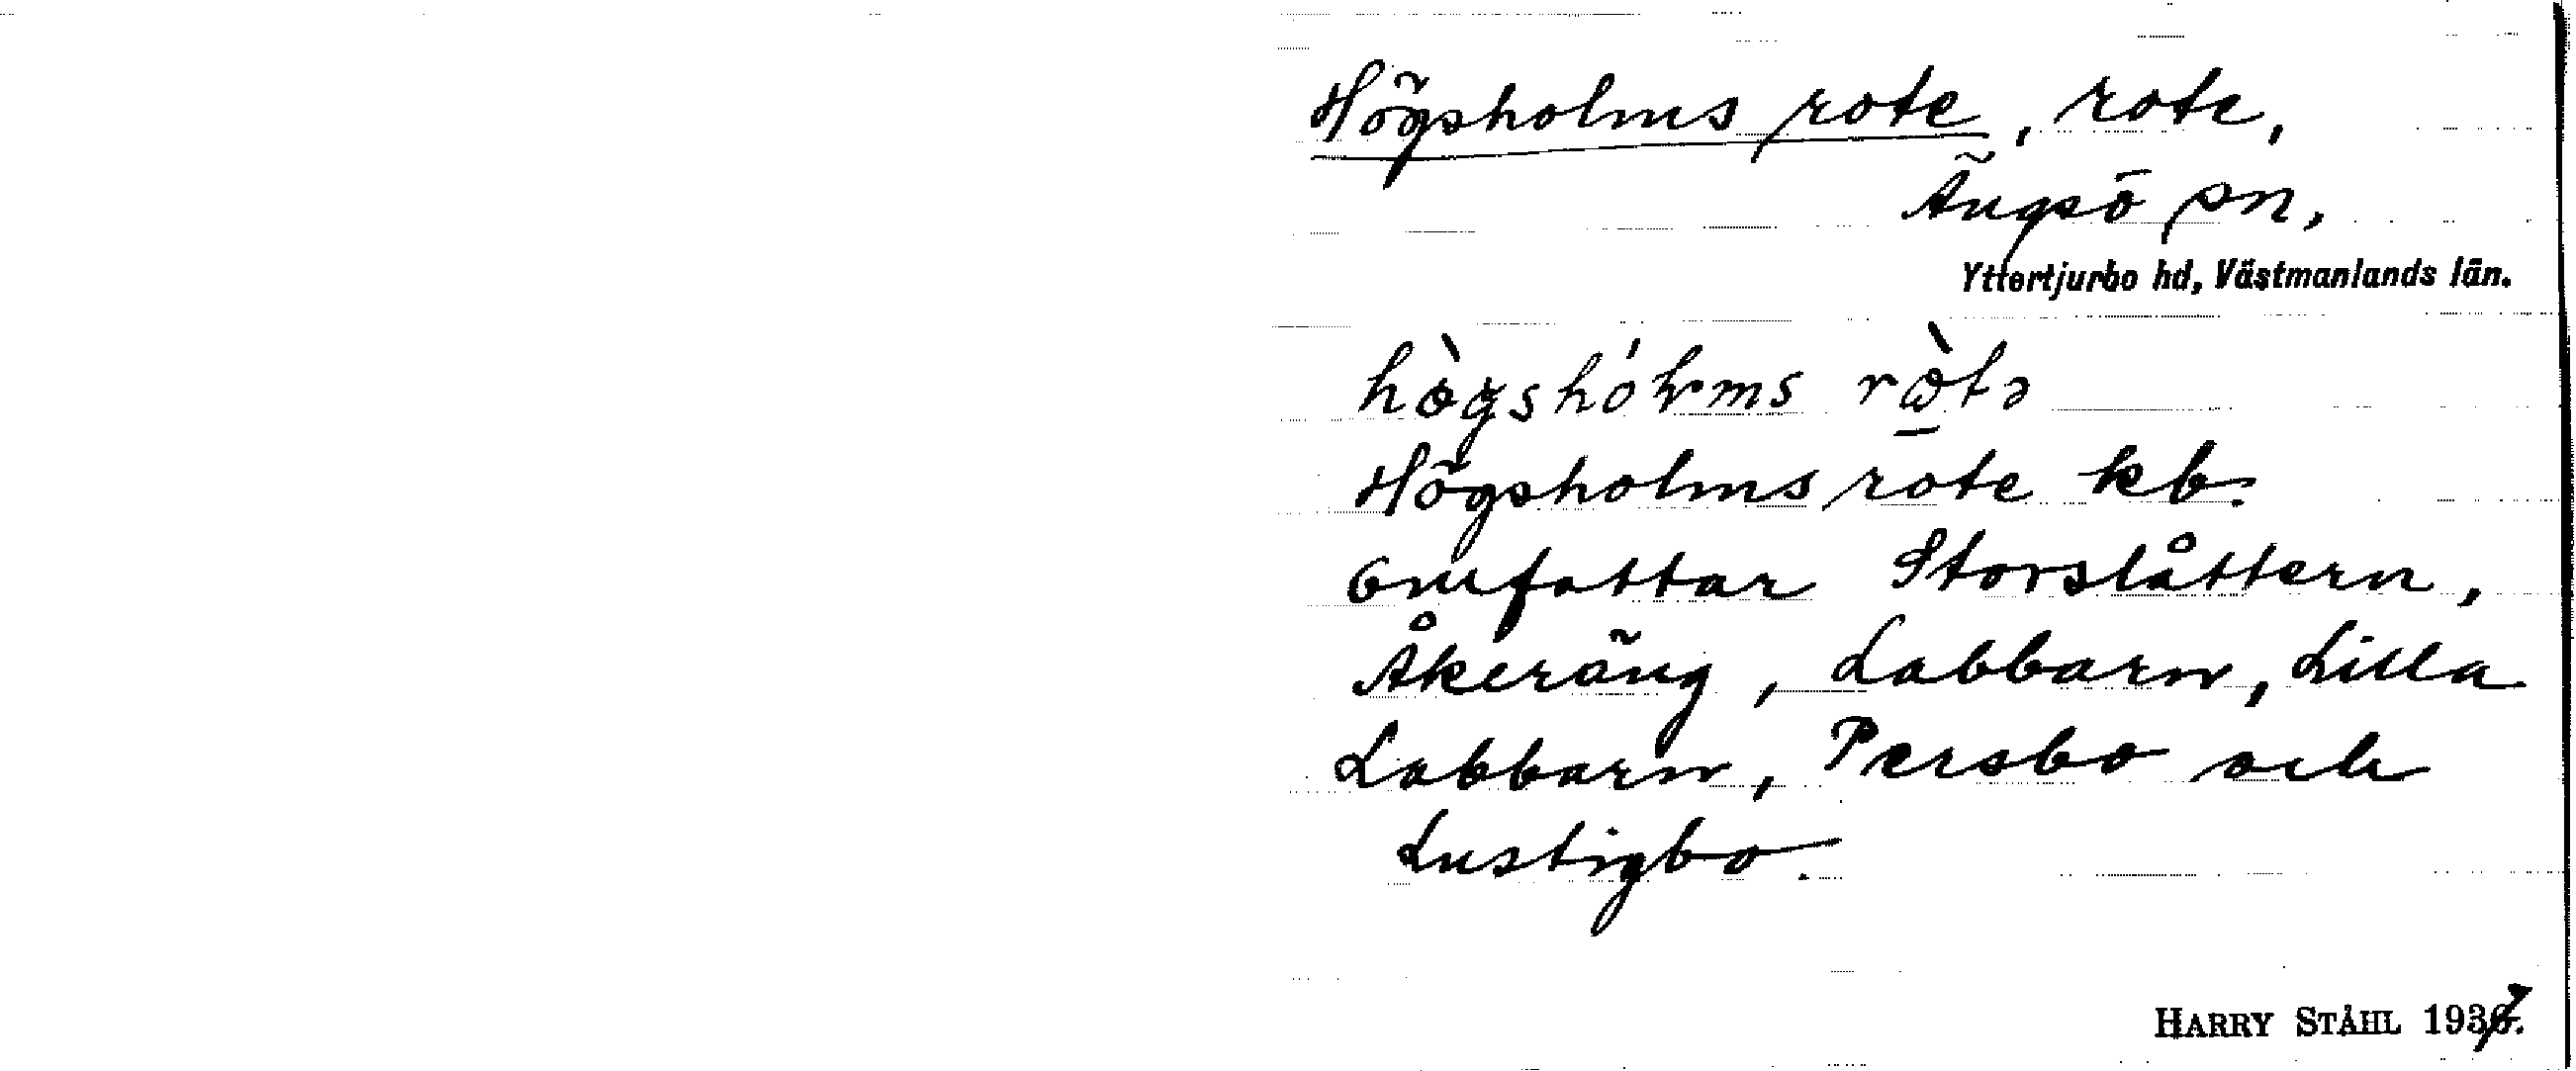 Högsholms rote, rote,
Ängsö sn,
Yttertjurbo hd, Västmanlands län.
Högsholms rote kb.
omfattar Storslåttern,
Åkeräng, Labbarn, Lilla
Labbarn, Persbo och
Lustigbo.
HARRY STÅHL 1937.